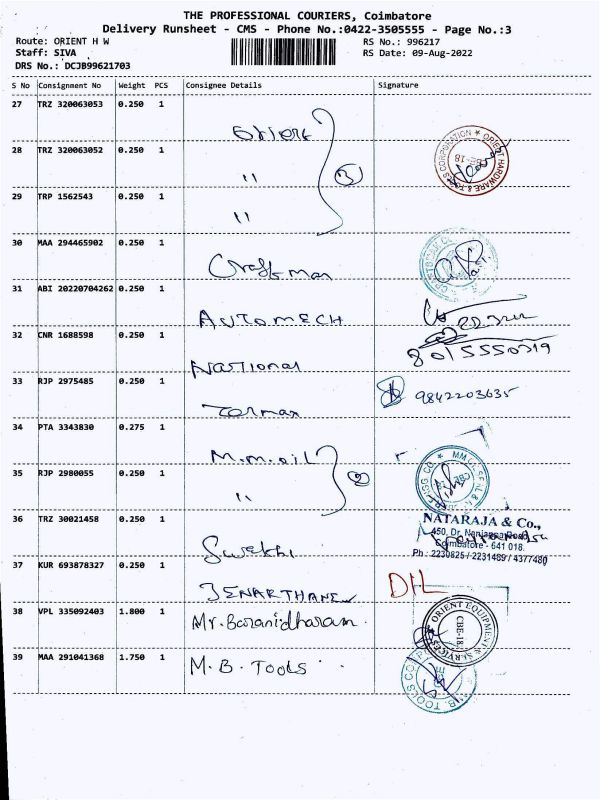 THE PROFESSIONAL COURIERS, Coimbatore
Delivery Runsheet - CMS - Phone No.:0422-3505555 - Page No.:3
Route: ORIENT H W
RS No.: 996217
Staff: SIVA
RS Date: 09-Aug-2022
DRS No.: DCJB99621703
S No Consignment No Weight PCS Consignee Details Signature
27 TRZ 320063053 0.250 1
Orient
28 TRZ 320063052 0.250 1
" 3
ORIENT HARDWARE & TOOLS CORPORATION
CBE-18
29 TRP 1562543 0.250 1
"
30 MAA 294465902 0.250 1
Craftsman
31 ABI 20220704262 0.250 1
AUTOMECH
32 CNR 1688598 0.250 1
8015550319
National
33 RJP 2975485 0.250 1
9842203635
34 PTA 3343830 0.275 1
M.M.oil
35 RJP 2980055 0.250 1
" 2
36 TRZ 30021458 0.250 1
NATARAJA & Co.,
450, Dr. Nanjappa Road,
Coimbatore - 641 018.
Ph : 2230825 / 2231489 / 4377480
37 KUR 693878327 0.250 1
JENARTHANEN
38 VPL 335092403 1.800 1
Mr. Baranidharan.
ORIENT EQUIPMENT & SERVICES
CBE-18
39 MAA 291041368 1.750 1
M.B. Tools